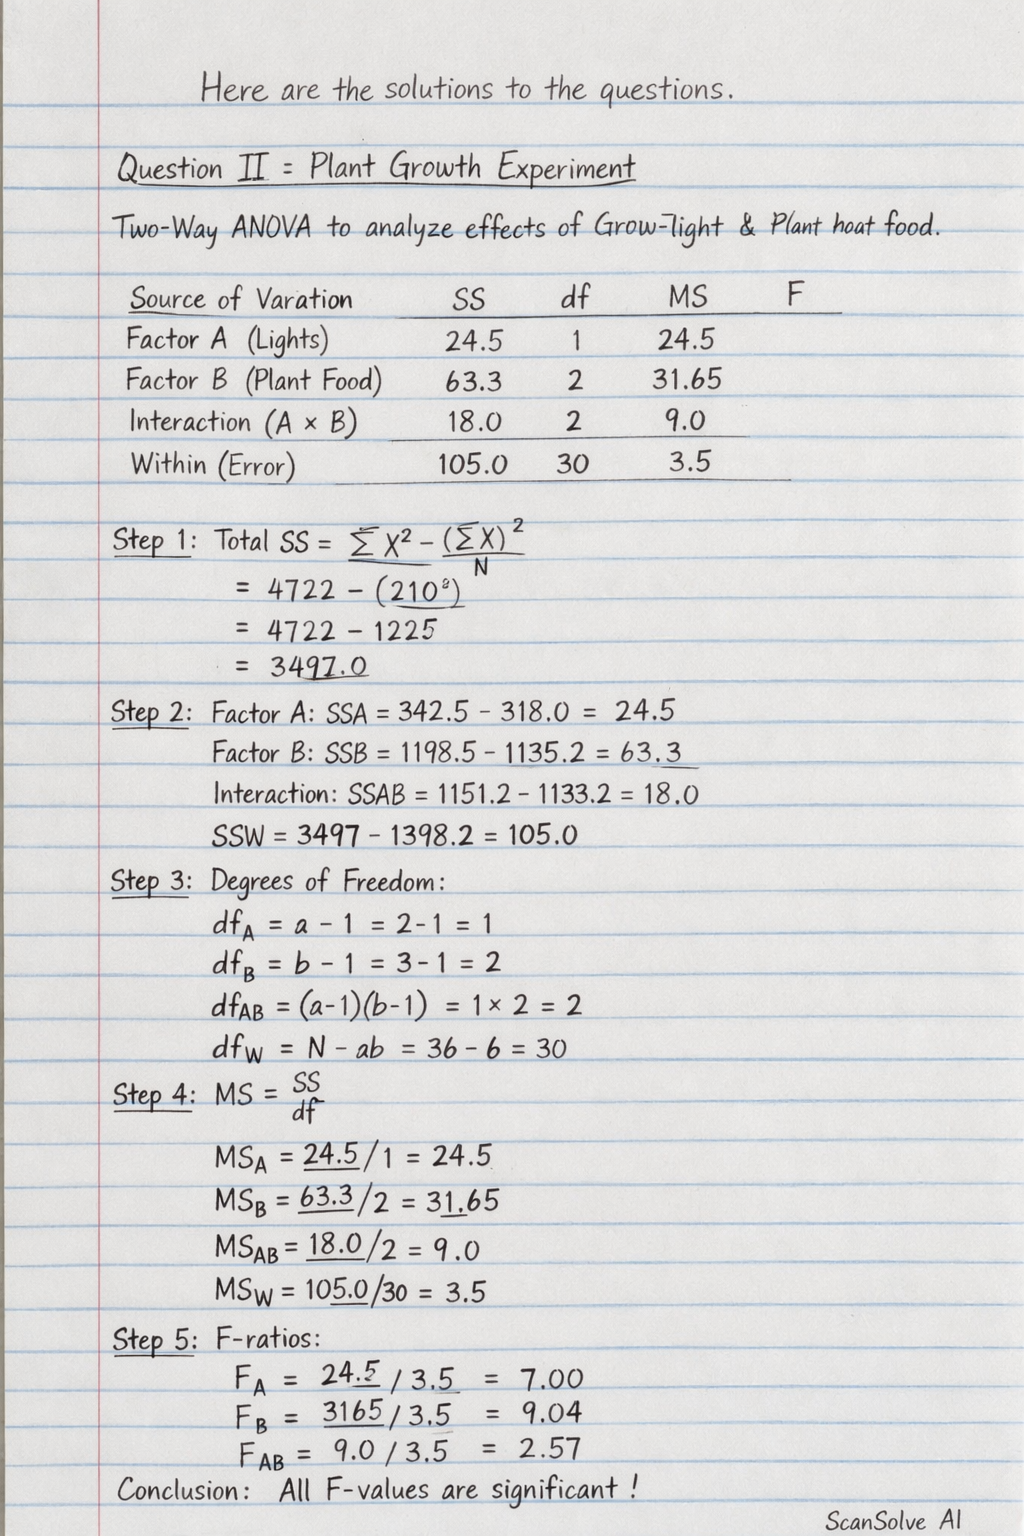 Here are the solutions to the questions.
Question II = Plant Growth Experiment
Two-Way ANOVA to analyze effects of Grow-light & Plant hoat food.
Source of Varation SS df MS F
Factor A (Lights) 24.5 1 24.5
Factor B (Plant Food) 63.3 2 31.65
Interaction (A × B) 18.0 2 9.0
Within (Error) 105.0 30 3.5
Step 1: Total SS = Σ X² - (ΣX)²
N
= 4722 - (210²)
= 4722 - 1225
= 3497.0
Step 2: Factor A: SSA = 342.5 - 318.0 = 24.5
Factor B: SSB = 1198.5 - 1135.2 = 63.3
Interaction: SSAB = 1151.2 - 1133.2 = 18.0
SSW = 3497 - 1398.2 = 105.0
Step 3: Degrees of Freedom:
df_A = a - 1 = 2-1 = 1
df_B = b - 1 = 3-1 = 2
df_AB = (a-1)(b-1) = 1 × 2 = 2
df_W = N - ab = 36 - 6 = 30
Step 4: MS = SS
df
MS_A = 24.5/1 = 24.5
MS_B = 63.3/2 = 31.65
MS_AB = 18.0/2 = 9.0
MS_W = 105.0/30 = 3.5
Step 5: F-ratios:
F_A = 24.5 / 3.5 = 7.00
F_B = 3165 / 3.5 = 9.04
F_AB = 9.0 / 3.5 = 2.57
Conclusion: All F-values are significant !
ScanSolve AI